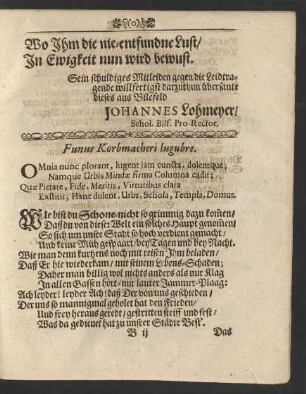 (o)
Wo Ihm die nie-entfundne Lust/
In Ewigkeit nun wird bewust.
Sein schuldiges Mitleiden gegen die Leidtra-
gende willfertigst darzuthun übersante
dieses aus Bilefeld
JOHANNES Lohmeyer/
Schol. Bilf. Pro-Rector.
Funus Korbmacheri lugubre.
OMnia nunc plorant, lugent jam cuncta, dolentque,
Namque Urbis Mindæ firma Columna cadit;
Quæ Pietate, Fide, Meritis, Virtutibus clara
Exstitit; Hanc dolent, Urbs, Schola, Templa, Domus.
WIe bist du Schons-nicht so grimmig dazu kom̃en/
Daß du von dieser Welt ein solches Haupt genom̃en/
So sich um unser Stadt so hoch verdient gemacht
Und keine Müh gespaart/ bey Tagen und bey Nacht.
Wie man dem kurtzens noch mit reisen Ihm beladen/
Daß Er hie wiederkam/ mit seinem Lebens-Schaden;
Daher man billig wol nichts anders als nur Klag
In allen Gassen hört/ nur lauter Jammer-Plaag:
Ach leyder! leyder Ach! daß Der von uns geschieden/
Der uns so mannigmal geholet hat den Frieden/
Und frey heraus geredt/ gestritten steiff und fest/
Was da gedienet hat zu unster Städte Best'.
B ij
Das